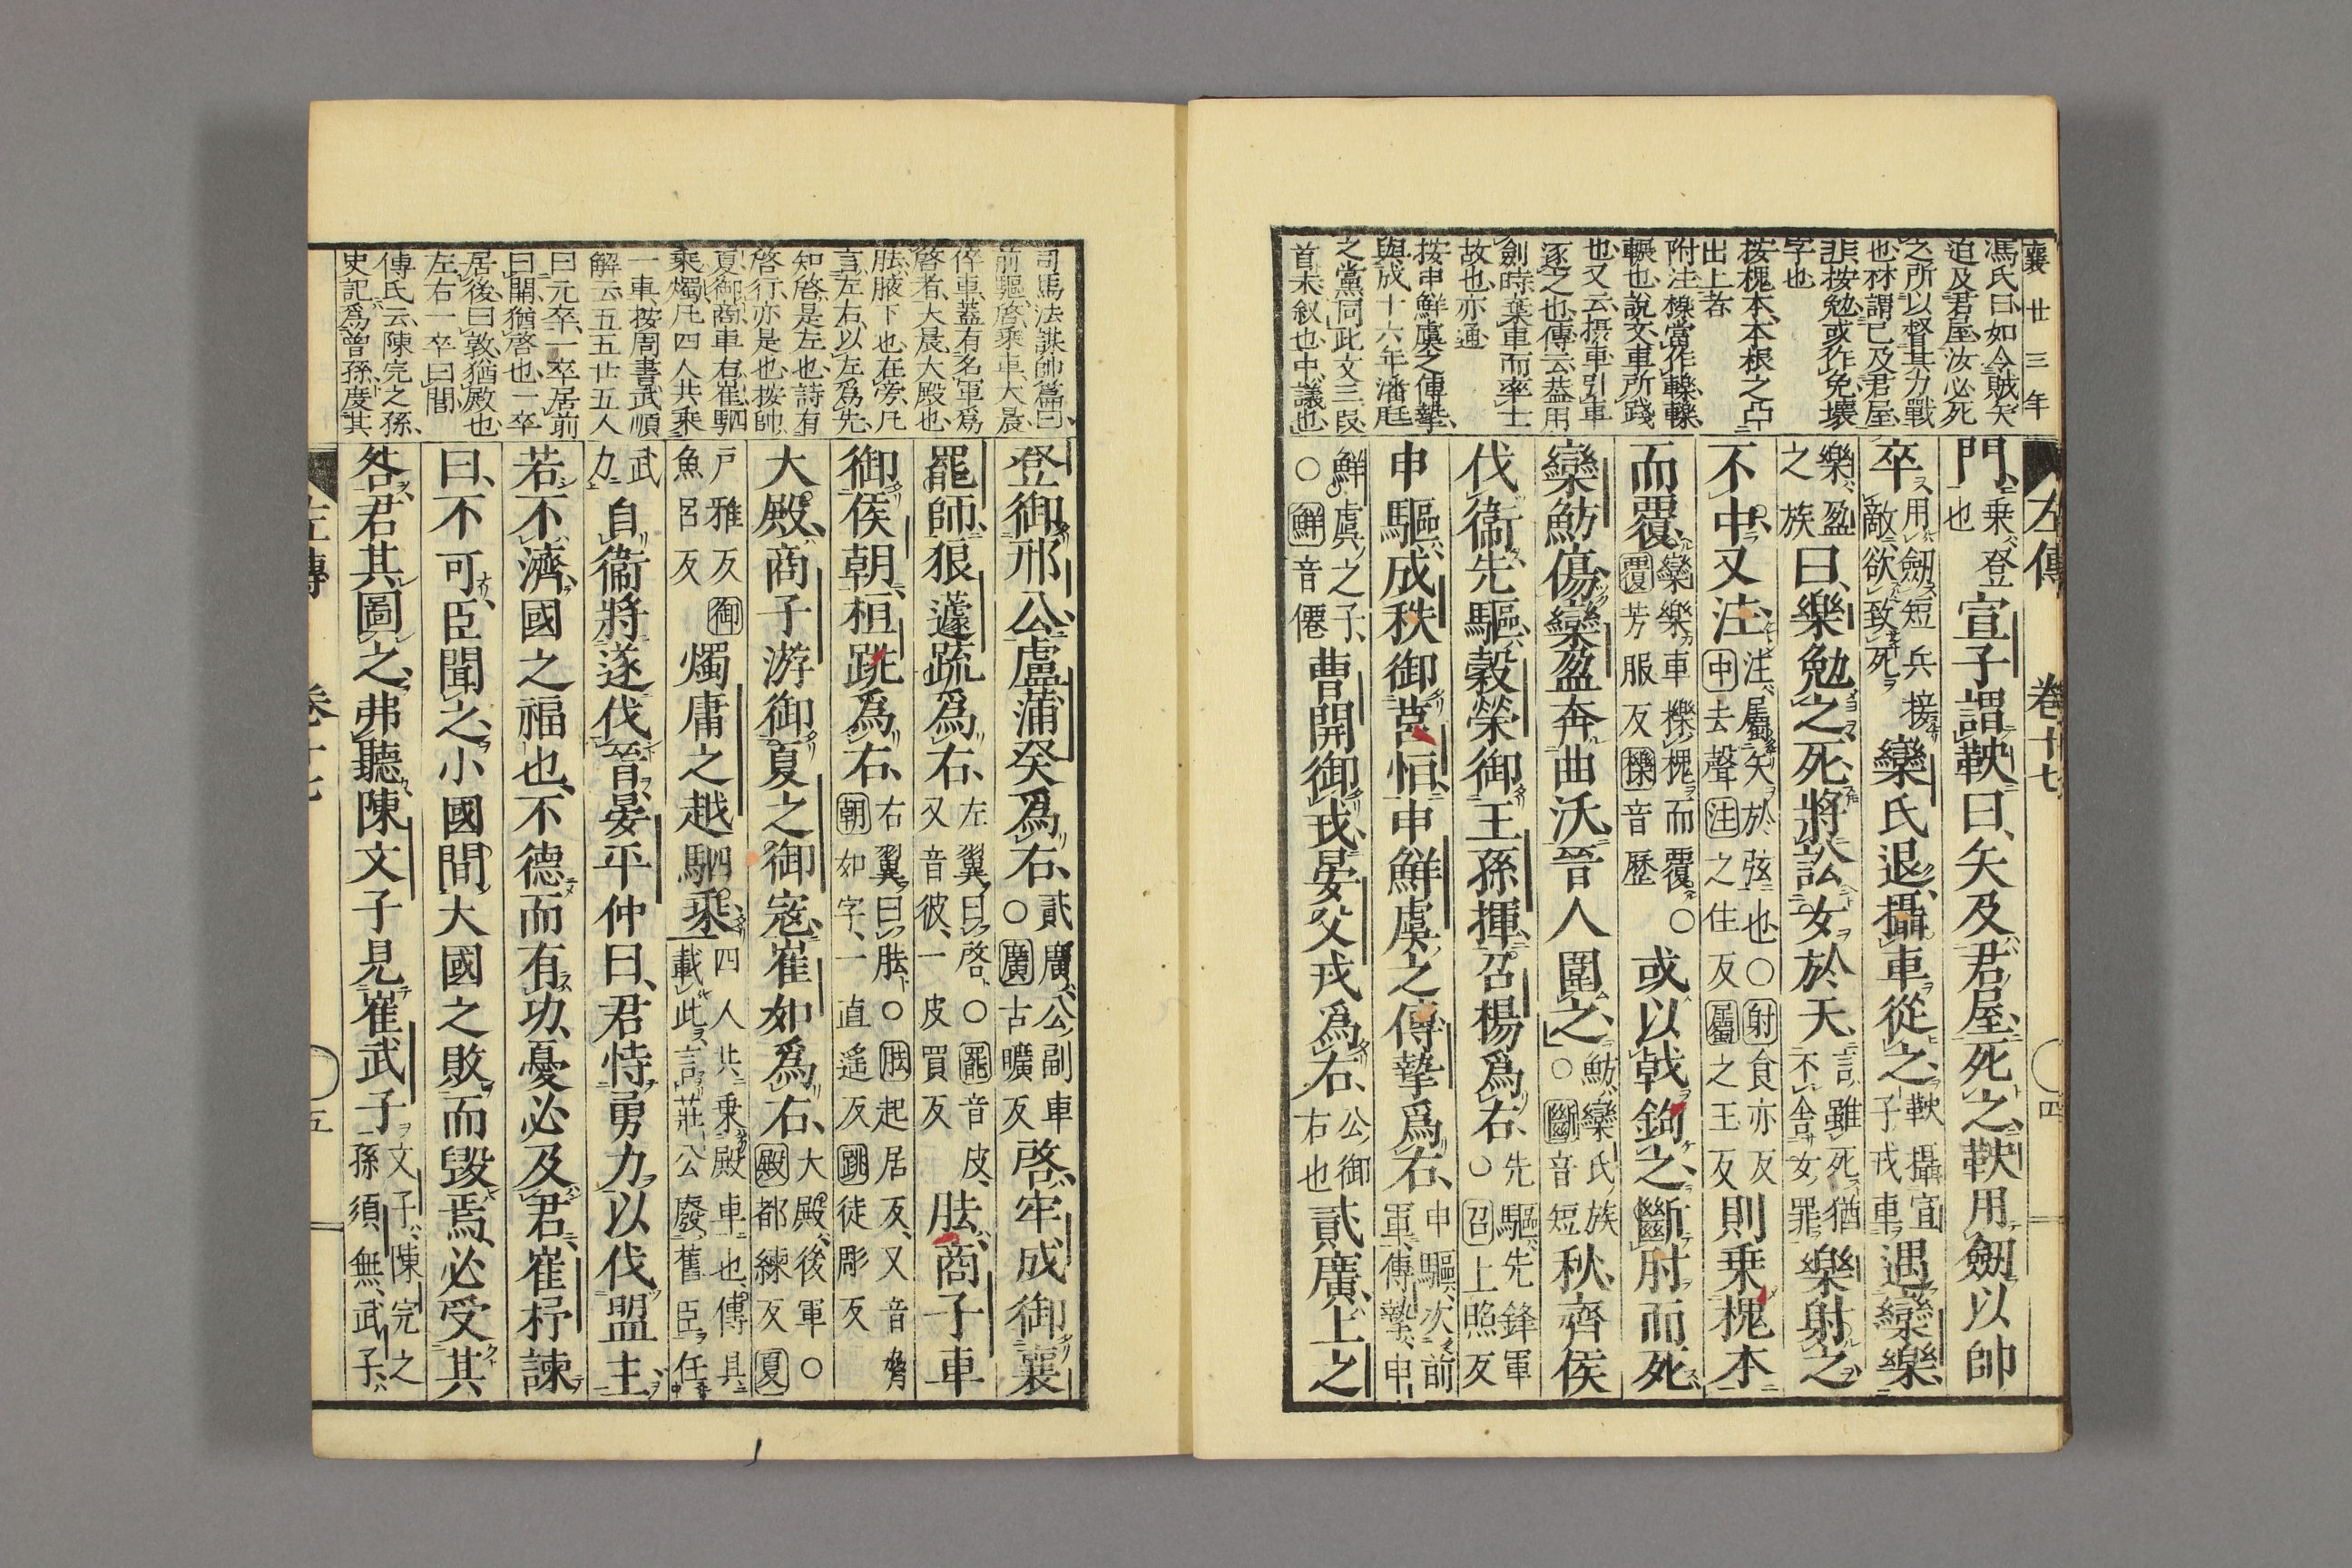 襄廿三年
左傳 卷十七 四
馮氏曰如今賊矢
迫及君屋汝必死
之所以督其力戰
也林謂已及君屋
非按勉或作免壞
字也
按槐本本根之亞
出上者
附注櫟當作轢轢
輾也說文車所踐
也又云摂車引車
逐之也傳云葢用
劍時棄車而率士
故也亦通
按申鮮虞之傳摯
與成十六年潘尫
之黨同此文三叚
首末叙也中議也
門乗登也宣子謂鞅曰矢及君屋死之鞅用劒以帥
卒用劒短兵接敵欲致死欒氏退攝車從之鞅攝宣子戎車遇欒樂
樂盈之族曰樂勉之死將訟女於天言雖死猶不舍女罪樂射之
不中又注注屬矢於弦也○射食亦反中去聲注之住反屬之玉反則乗槐本
而覆欒樂車櫟槐而覆○覆芳服反櫟音歷或以戟鉤之斷肘而死
欒魴傷欒盈奔曲沃晉人圍之魴欒氏族○斷音短秋齊侯
伐衞先驅穀榮御王孫揮召楊爲右先驅先鋒軍○召上照反
申驅成秩御莒恒申鮮虞之傅摯爲右申驅次前軍傅摯申
鮮虞之子○鮮音僊曹開御戎晏父戎爲右公御右也貳廣上之
司馬法謀帥篇曰
前驅啓乘車大晨
倅車葢有名軍爲
啓者大晨大殿也
胠腋下也在旁凡
言左右以左爲先
知啓是左也詩有
啓行亦是也按帥
夏御商車右崔駟
乘燭凡四人共乘
一車按周書武順
解云五五廿五人
曰元卒一卒居前
曰開猶啓也一卒
居後曰敦猶殿也
左右一卒曰閭
傳氏云陳完之孫
史記爲曾孫度其
登御邢公盧蒲癸爲右貳廣公副車○廣古曠反啓牢成御襄
罷師狼蘧疏爲右左翼曰啓○罷音皮又音彼一皮買反胠商子車
御侯朝桓跳爲右右翼曰胠○胠起居反又音脅朝如字一直遥反跳徒彫反
大殿商子游御夏之御寇崔如爲右大殿後軍○殿都練反夏
戸雅反御魚呂反燭庸之越駟乘四人共乗殿車也傳具載此言莊公廢舊臣任
武力自衞將遂伐晉晏平仲曰君恃勇力以伐盟主
若不濟國之福也不德而有功憂必及君崔杼諫
曰不可臣聞之小國間大國之敗而毀焉必受其
咎君其圖之弗聽陳文子見崔武子文子陳完之孫須無武子
左傳 卷十七 五